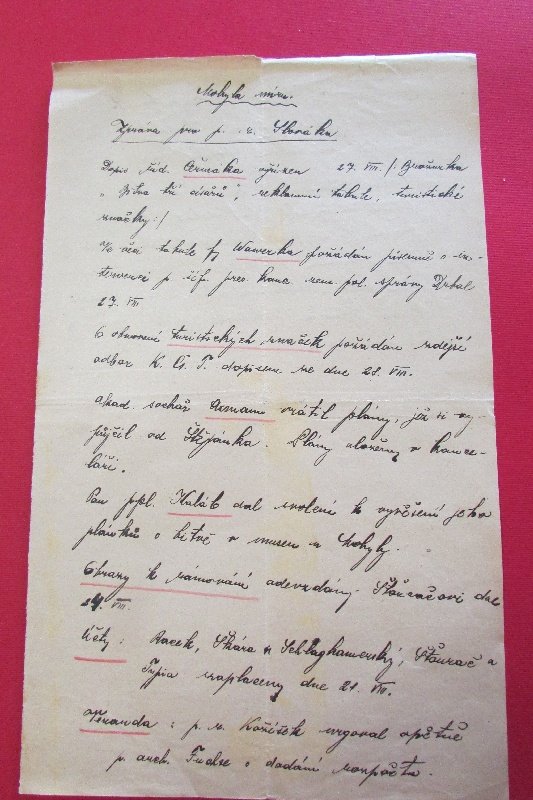 Mohyla míru.
Zpráva pro p. r. Slováka
Dopis říd. Čermáka vyřízen 27. VIII. /: Brožurka
„Bitva tří císařů", reklamní tabule, turistické
značky :/
Ve věci tabule fy Wawerka požádán písemně o in-
tervenci p. šéf. pres. kanc. zem. pol. správy Drbal
27. VIII
O obnovení turistických značek požádán zdejší
odbor K. Čs. T. dopisem ze dne 28. VIII.
Akad. sochař vrátil plány, jež si vy-
půjčil od Štěpánka. Plány uloženy v kance-
láři.
Pan ppl. Kaláb dal svolení k vyvěšení jeho
plánků o bitvě v museu u Mohyly.
Obrazy k rámování odevzdány Šťouračovi dne
24. VIII.
Účty: Racek, Škára Schlaghamerský, Šťourač a
Typia zaplaceny dne 21. VIII.
Veranda: p. r. Kožíšek urgoval opětně
p. arch. Fuchse o dodání rozpočtu.